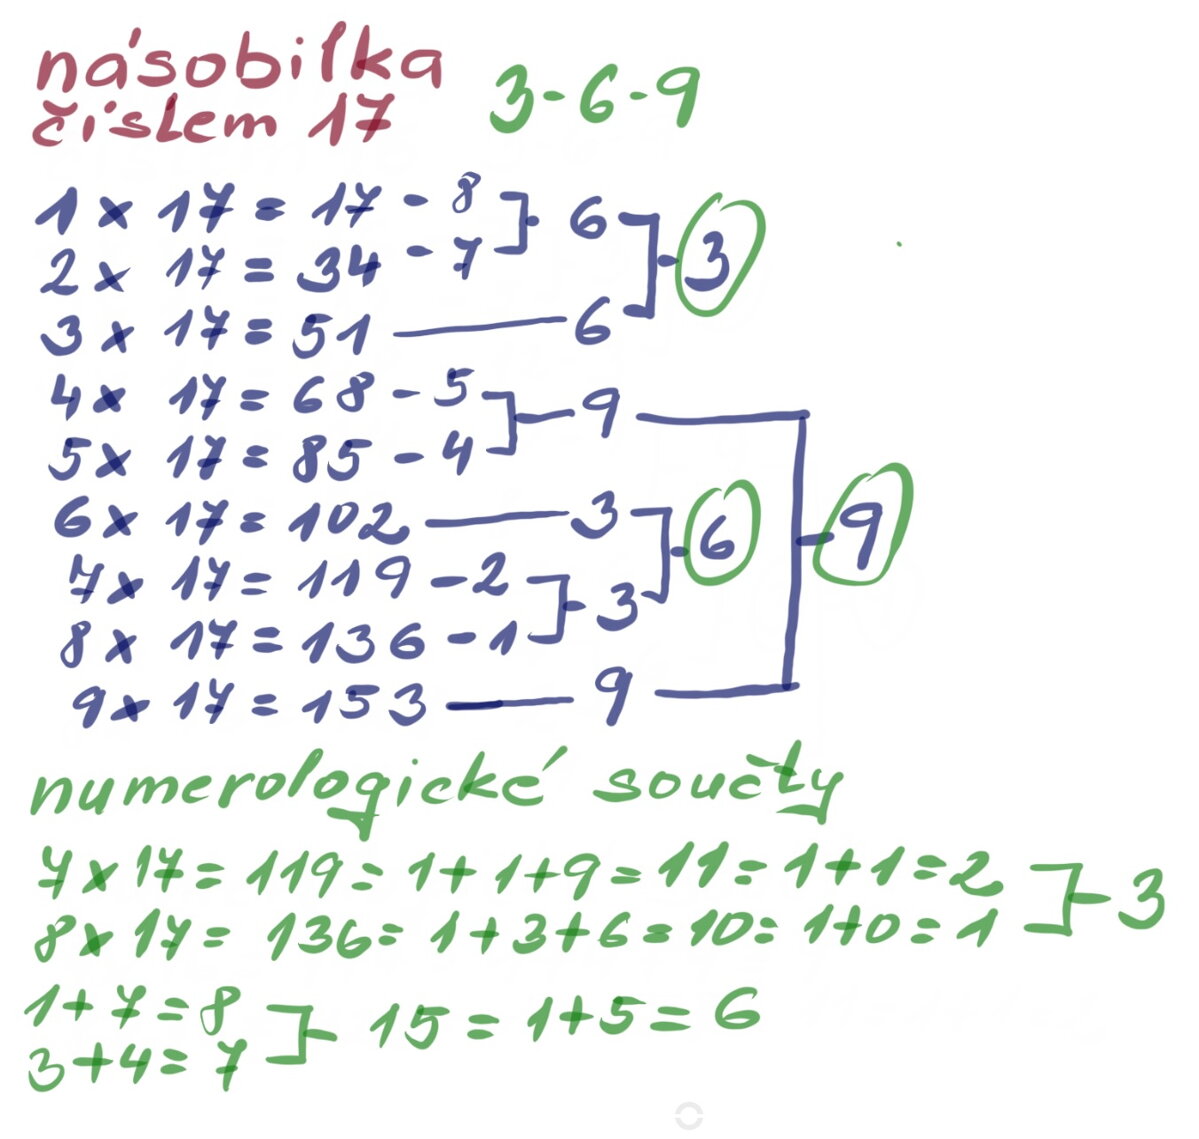 násobilka
číslem 17 3-6-9
1 x 17 = 17 - 8
6
2 x 17 = 34 - 7
3
3 x 17 = 51 — 6
4 x 17 = 68 - 5
9
5 x 17 = 85 - 4
6 x 17 = 102 — 3
6 9
7 x 17 = 119 - 2
3
8 x 17 = 136 - 1
9 x 17 = 153 — 9
numerologické součty
7 x 17 = 119 = 1+1+9 = 11 = 1+1 = 2
3
8 x 17 = 136 = 1+3+6 = 10 = 1+0 = 1
1+7 = 8
15 = 1+5 = 6
3+4 = 7